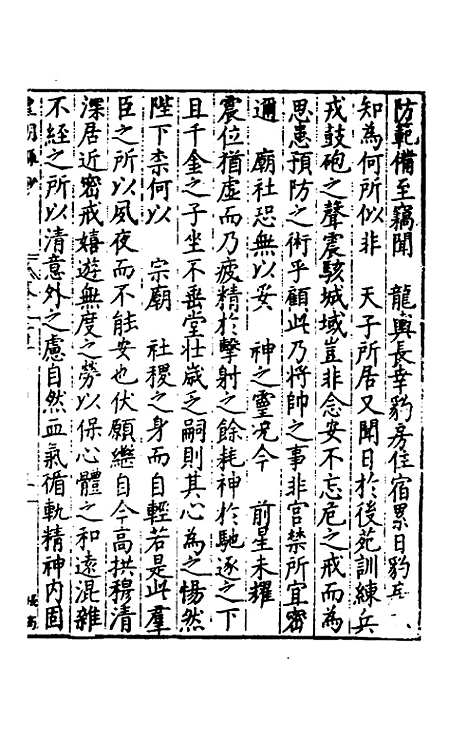 防範備至竊聞　龍輿長幸豹房住宿累日豹房
知為何所似非　天子所居又聞日於後苑訓練兵
戎鼓砲之聲震駭城域豈非念安不忘危之戒而為
思患預防之術乎顧此乃將帥之事非宮禁所宜密
邇　廟社恐無以妥　神之靈况今　前星未耀
震位猶虛而乃疲精於擊射之餘耗神於馳逐之下
且千金之子坐不垂堂壯歲乏嗣則其心為之惕然
陛下柰何以　宗廟　社稷之身而自輕若是此羣
臣之所以夙夜而不能安也伏願繼自今高拱穆清
深居近密戒嬉遊無度之勞以保心體之和遠混雜
不經之所以清意外之慮自然血氣循軌精神內固